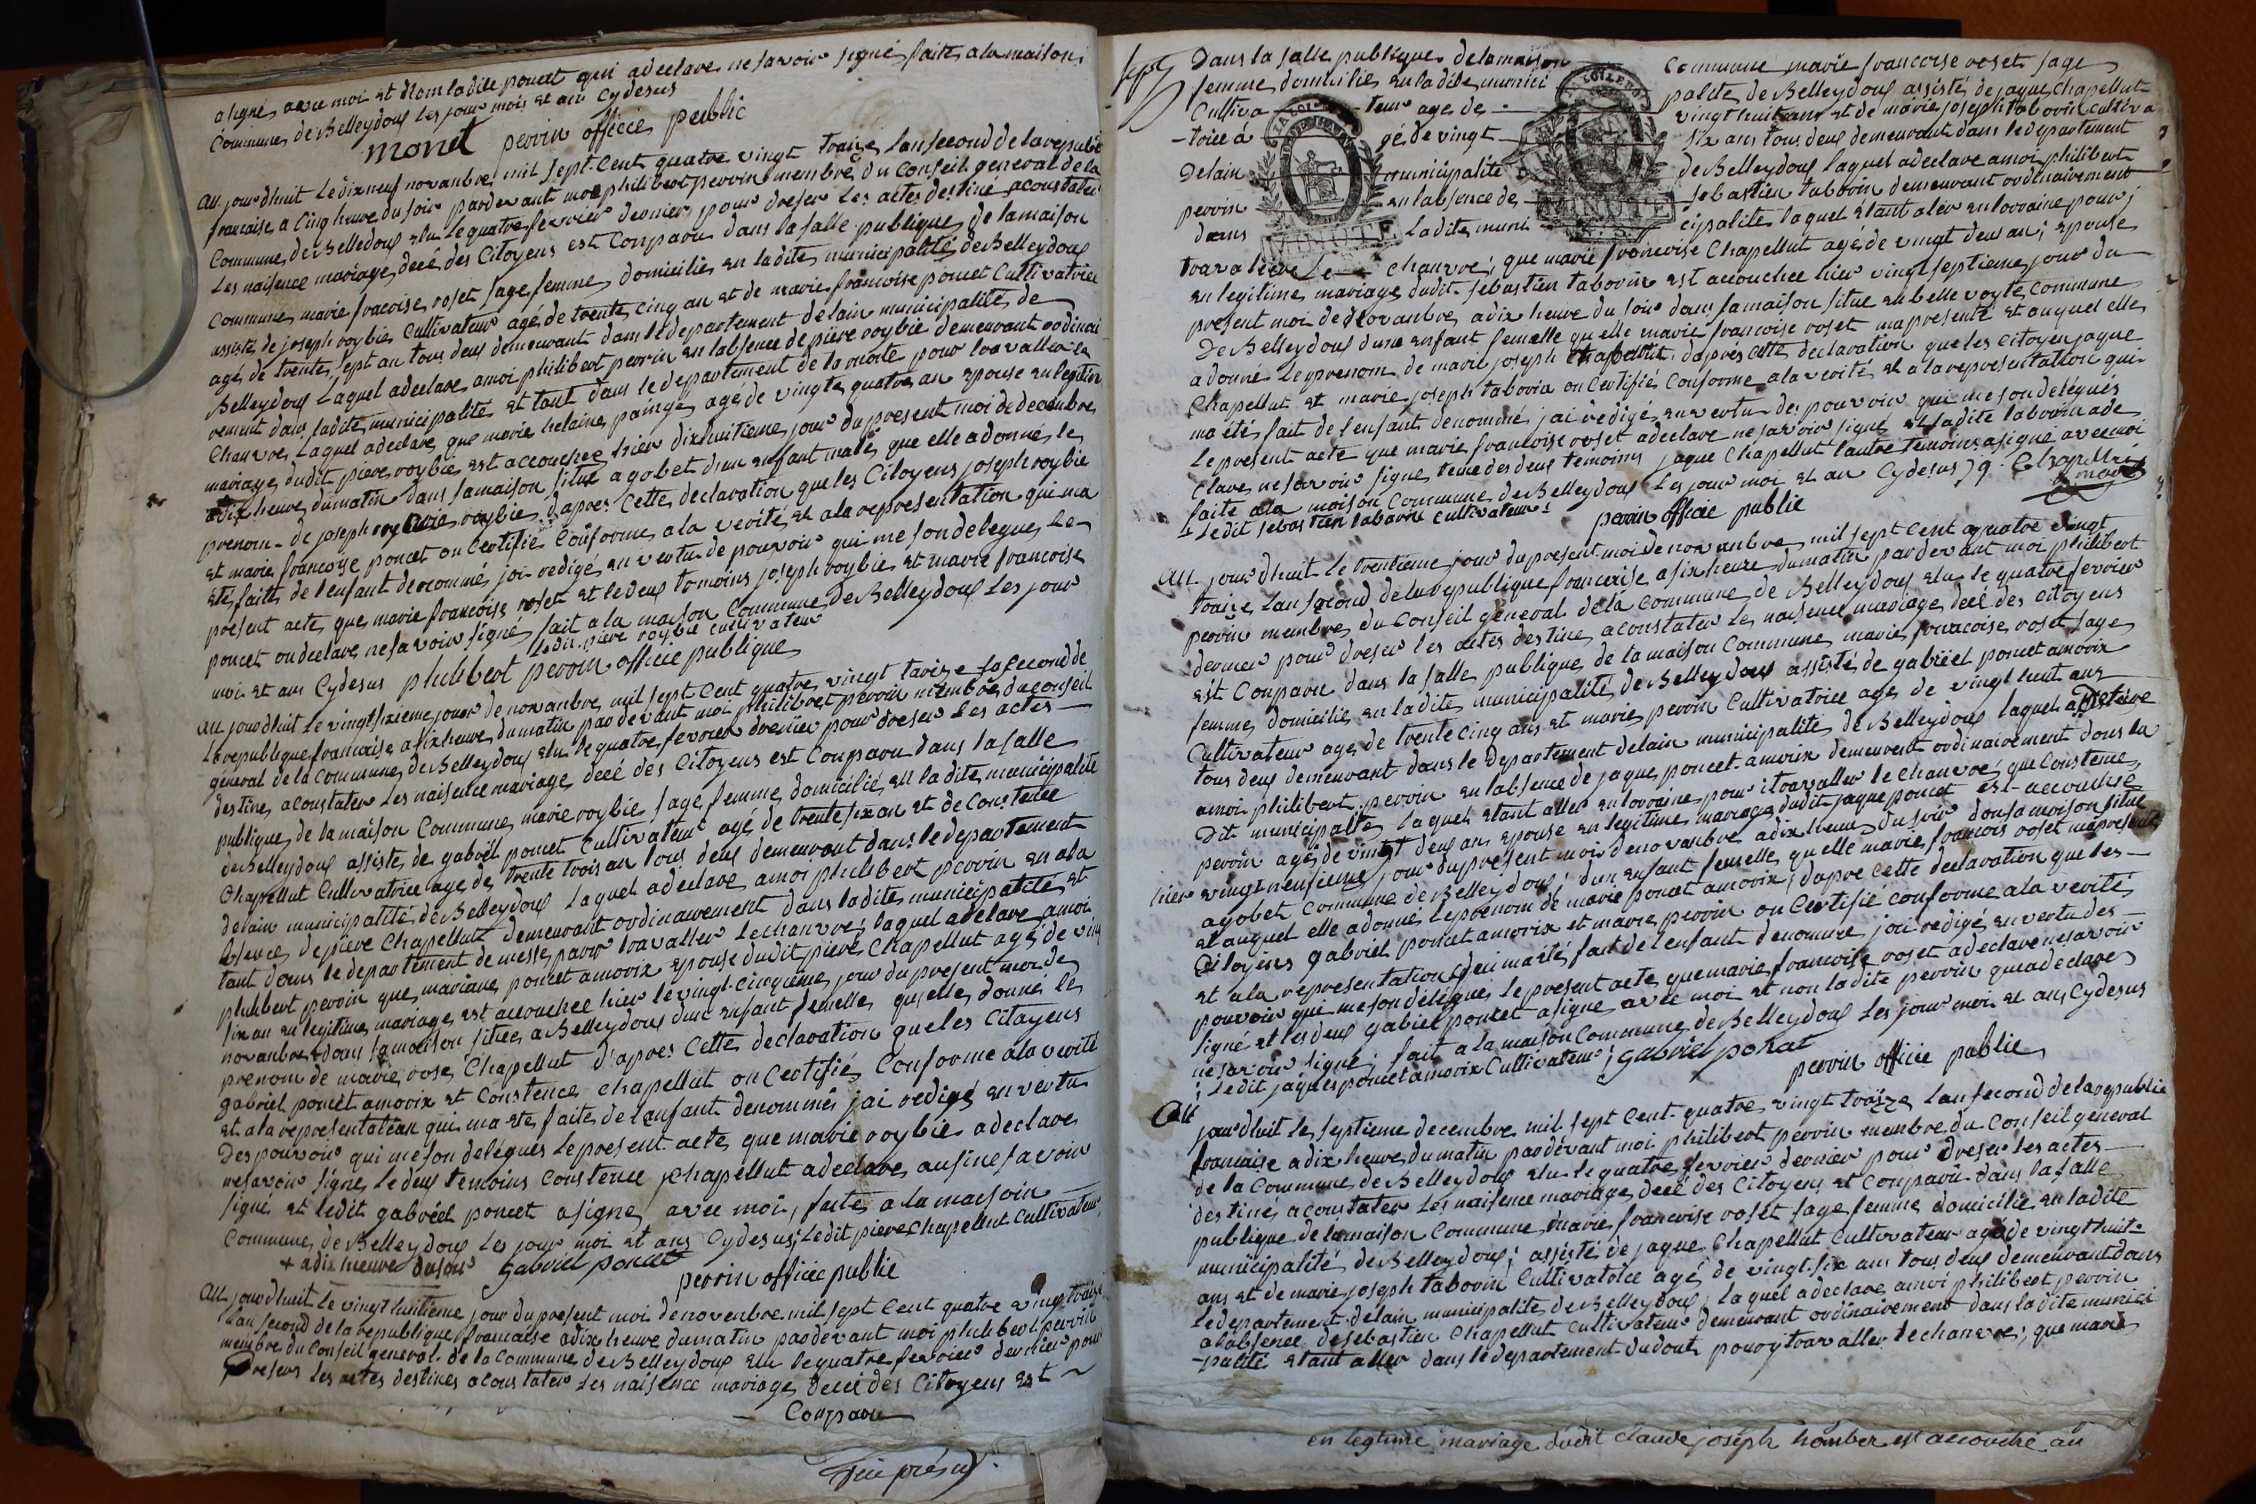 a signé avec moi et nom ladite poncet qui adeclare ne savoir signé faite ala maison
Commune de Belleydoux les jour mois et an Cydesus
monet perrin officié public
Au jourdhuit ledixneuf novanbre mil sept Cent quatre vingt traize lan second de la republi
francaise a Cinq heure du soir pardevant moi philibert perrin membre du Conseil general de la
Commune de Belledoux elu le quatre fevrier dernier pour dreser les actes destine a constater
Les naisence mariage decé des Citoyens est Conparu dans la salle publique de lamaison
Commune marie fracoise roset sage femme domicilié en ladite municipalité de Belleydoux
assisté de joseph roybié Cultivateur agé de trente cinq an et de marie francoise poncet Cultivatrice
agé de trente sept an tous deux demeurant dans le departement delain municipalité de
Belleydoux laquel adeclare amoi philibert perrin en labsence de piere roybié demeurant ordinai
rement dans ladite municipalité et tant dans le departement de pour travaller le
Chanvre laquel adeclare que marie helaine paingé agé de vingte quatre an epouse en legitim
mariage dudit piere roybié est accouchee hier dixhuitieme jour du present moi de decenbre
a dix heure dumatin dans samaison situe a gobet dun enfant male que elle adonné le
prenom de joseph marie roybié dapres Cette declaration que les Citoyens joseph roybié
et marie francoise poncet on Certifié Conforme ala verité et ala representation qui ma
eté faite de lenfant denommé jai redigé en vertu de pouvoir qui me son delegue le
present acte que marie francoise roset et le deux temoins joseph roybié et marie francoise
poncet on declare ne savoir signé fait a la maison Commune de Belleydoux les jour
moi et an Cydesus ledit piere roybié cultivateur
philibert perrin officié publique
Au jourdhuit le vingtsixieme jour de novanbre mil sept Cent quatre vingt traize la second de
la republique francaise a six heure du matin pardevant moi philibert perrin membre du conseil
general de la commune de Belleydoux elu le quatre fevrier drenier pour dreser les actes
destine a constater les naisence mariage decé des Citoyens est Conparu dans la salle
publique de la maison Commune marie roybié sage femme domicilié en la dite municipalité
de Belleydoux assiste de gabriel poncet Cultivateur agé de trente six an et de Constence
Chapellut Cultivatrice age de trente trois an tous deux demeurant dans le departement
delain municipalité de Belleydoux laquel adeclare amoi philibert perrin en ala
bsence de piere Chapellut demeurant ordinairement dans ladite municipalité et
tant dans le departement de messe pour travaller le chanvre laquel adeclare amoi
philibert perrin que mariane poncet amorix epouse dudit piere Chapellut agé de vin
six an en legitime mariage est accouchee hier le vingt cinqieme jour du present moi de
novanbre dans samaison situee a Belleydoux dune enfant femelle quelle donne le
prenom de marie rose Chapellut d'apres Cette declaration que les Citoyens
gabriel poncet amorix et Constence chapellut on Certifié Conforme ala verité
et ala representation qui ma ete faite de lanfant denommés jai redigé en vertu
Des pouvoir qui me son delegues le present acte que marie roybié adeclare
ne savoir signé le deux temoins Constence Chapellut adeclare ausi ne savoir
signé et ledit gabriel poncet a signe avec moi, faite a la maisoin
Commune de Belleydoux les jour moi et ans Cydesus ledit piere chapellut cultivateur
+ adix heure du soir Gabriel poncet
perrin officié public
Au jourdhuit le vingthuitieme jour du present moi de novenbre mil sept Cent quatre vingt traize
lan second de la republique francaise adix heure dumatin pardevant moi philibert perrin
membre du Conseil general de la commune de Belleydoux elu le quatre fevrier dernier pour
dreser les actes destines a constater les naisence mariage decé des Citoyens est
Conparu
Dans la salle publique de la maison Commune marie francoise roset sage
femme domicilié en ladite munici palite de Belleydoux assisté de jaque chapellut
Cultiva teur age de vingt huit ans et de marie joseph taborin cultiva
trice a gé de vingt six ans tous deux demeurant dans le departement
Delain municipalité de Belleydoux laquel adeclare amoi philibert
perrin en labsence de sebastien taborin demeurant ordinairement
dans Ladite muni cipalité laquel etant aler en lorraine pour
travaliere Le chanvre que marie francoise Chapellut agé de vingt deux an epouse
en legitime mariage dudit sebastien taborin est accouchee hier vingt septieme jour du
present moi de Novanbre adix heure du soir dans samaison situe en belle voyte commune
De Belleydoux dune enfant femelle quelle marie francoise roset ma presenté et auquel elle
a donné le prenom de marie joseph dapres cette declaration que les Citoyen jaque
Chapellut et marie joseph taborin on certifié Conforme ala verité et ala representation qui
ma eté fait de lenfant denommé jai redigé en vertu des pouvoir qui me son delegués
Le present acte que marie francoise roset adeclare ne savoir signé et ladite taborin ade
clare ne savoir signe des deux temoins jaque Chapellut lautre temoins a signé avec moi
faite ala maison Commune de Belleydoux les jour moi et an Cydesus
Ledit sebastien taborin cultivateur
perrin officié publie
Au jourdhuit le trentieme jour du present moi de novanbre mil sept Cent quatre vingt
traize lan second de la republique francaise a six heure dumatin pardevant moi philibert
perrin membre du Conseil general de la commune de Belleydoux elu le quatre fevrier
dernier pour dreser les actes destine a constater les naisence mariage decé des citoyens
est Conparu dans la salle publique de la maison Commune marie francoise roset sage
femme domicilié en ladite municipalité de Belleydoux assisté de gabriel poncet amorix
Cultivateur age de trente cinq ans et marie perrin Cultivatrice age de vingt huit ans
tous deux demeurant dans le departement delain municipalité de Belleydoux laquel adeclare
amoi philibert perrin en labsence de jaque poncet amorix demeurent ordinairement dans la
Dit municipalte laquel etant aller en lorraine pour i travaller le chanvre que Constence
perrin agé de vingt deux ans epouse en legitime mariage dudit jaque poncet est accouchee
hier vingt neufieme jour du present moi de novanbre a dix heure du soir dans samaison situe
agobet commune de Belleydoux dun enfant femelle quelle marie francois roset ma presenté
et auquel elle adonné le prenom de marie poncet amorix dapre Cette declaration que les
Citoyens gabriel poncet amorix et marie perrin on Certifié conforme a la verité
et ala representation qui ma eté fait de lenfant denommé jai redigé en vertu des
pouvoir qui me son delegués le present acte que marie francoise roset adeclare ne savoir
signé et les deux gabriel poncet a signe avec moi et non ladite perrin qui adeclare
ne savoir signé fait a la maison Commune de Belleydoux les jour moi et an Cydesus
Ledit jaques poncet amorix Cultivateur Gabriel poncet
perrin officié public
Au
jourdhuit le septieme decembre mil sept Cent quatre vingt traize lan second de la republic
francaise a dix heure du matin pardevant moi philibert perrin membre du Conseil general
de la Commune de Belleydoux elu le quatre fevrier dernier pour dreser les actes
destines a constater les naisence mariage decé des Citoyens est Conparu dans la salle
publique de la maison Commune marie francoise roset sage femme domicilie en ladite
municipalité de Belleydoux assisté de jaque Chapellut cultivateur agé de vingt huit
ans et de marie joseph taborin Cultivatrice agé de vingt six ans tous deux demeurant dans
le departement delain municipalite de Belleydoux laquel adeclare amoi philibert perrin
alabsence de sebastien Chapellut cultivateur demeurant ordinairement dans ladite munici
palité etant aller dans le departement du pour y travaller le chanvre, que marie
en legtime mariage dudit claude joseph homber est accouche au